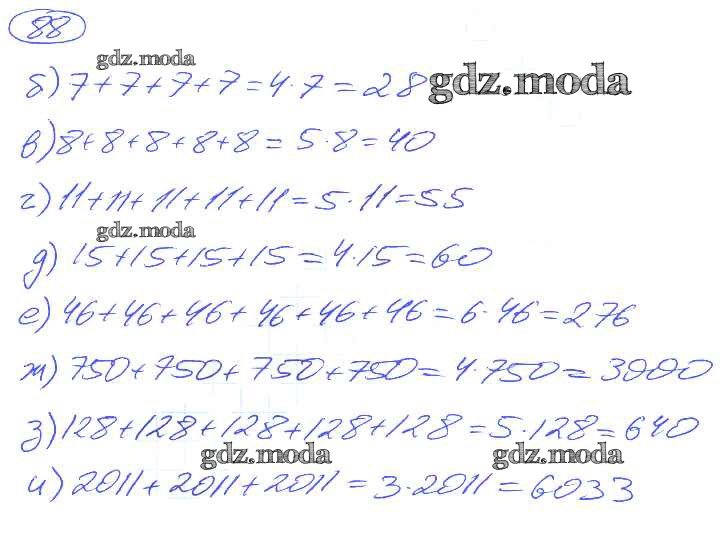 88
gdz.moda
б) 7+7+7+7=4·7=28
gdz.moda
в) 8+8+8+8+8=5·8=40
г) 11+11+11+11+11=5·11=55
gdz.moda
д) 15+15+15+15=4·15=60
е) 46+46+46+46+46+46=6·46=276
ж) 750+750+750+750=4·750=3000
з) 128+128+128+128+128=5·128=640
gdz.moda gdz.moda
и) 2011+2011+2011=3·2011=6033